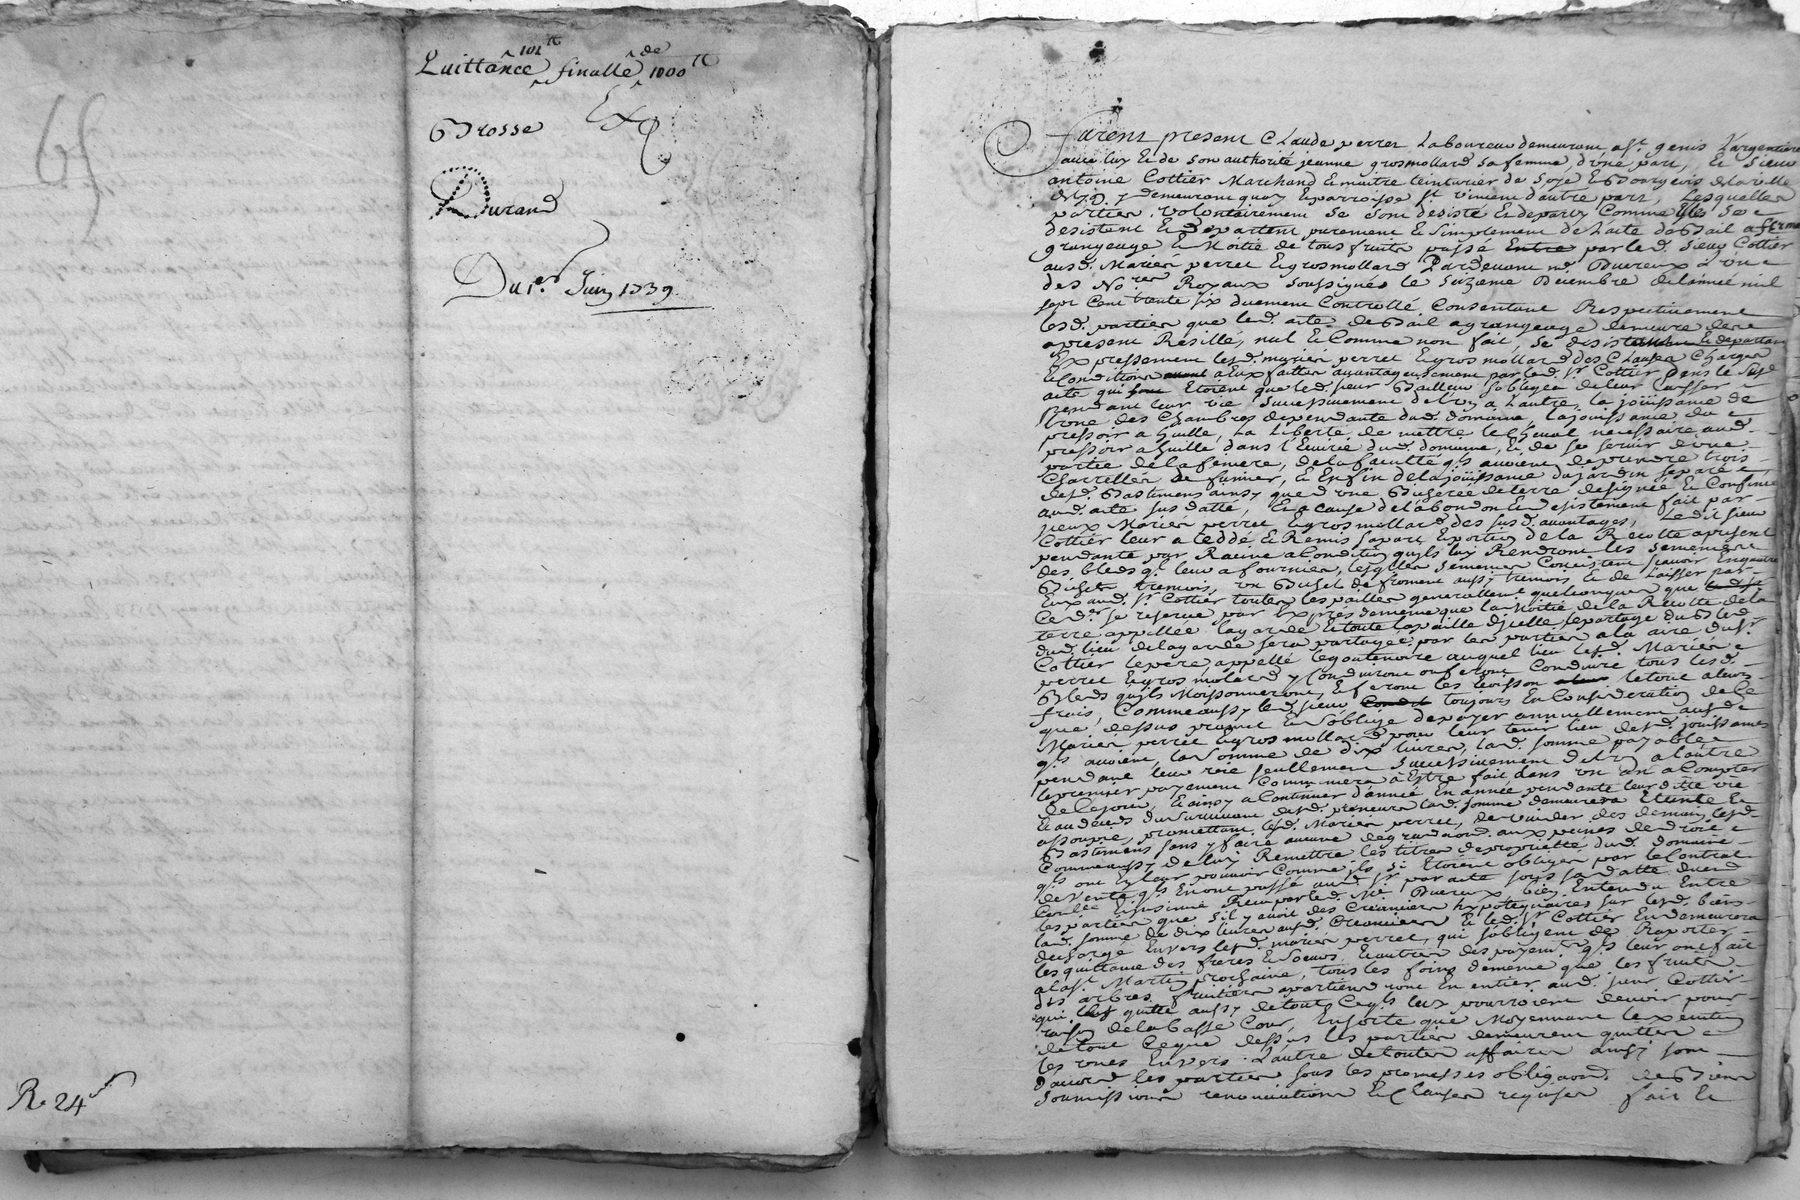 65
101ᵗᵗ de
Quittance finalle 1000ᵗᵗ
Brosse Ex
Durand
Du 1er Juin 1739
R. 24
Furent present Claude perret Laboureur demeurant a st. genis L'argentiere
avec luy & de son authorité jeanne grosmollard sa femme d'une part, Et sieur
antoine Cottier Marchand & maitre teinturier de soye & Bourgeois de la ville
de Lyon y demeurant quay & parroisse st. vincent d'autre part, Lesquelles
parties volontairement se sont desisté & departy comme elles se
desistent & departent purement & simplement de L'acte de Bail a ferme
grangeage & Moitié de tous fruits passé Entre par led. sieur Cottier
ausd. Mariés perret & grosmollard Pardevant me. Duereux L'un
des Nores Royaux soussignés le Decembre de l'année mil
sept cent trente six duement Controllé, Consentant Respectivement
lesd. parties que led. acte de Bail a grangeage demeure des a
apresent Resillé, nul & Comme non fait, se desistent & departant
Expressement lesd. mariés perret & grosmollard des Clauses Charges
& Conditions a Eux faittes avantageusement par led. sr. Cottier dans le susd.
acte qui sont Etoient que led. sieur Bailleur s'obligea de leur laisser
pendant leur vie successivement de l'un a L'autre, la joüissance de
l'une des chambres dependante dud. domaine la jouissance du
pressoir a huille, La Liberté de mettre le cheval necessaire aud.
pressoir a huille dans l'Ecurie dud. domaine, & de se servir d'une
partie de la feniere, de la faculté qls avoient de prendre trois
Charrettes de fumier, & Enfin de la joüissance du jardin separé
desd. Bastimens ainsy que d'une Bicherée de terre designée & Confinée
aud. acte susdatté, & a cause de l'abandon & desistement fait par
yceux Mariés perret & grosmollard des susd. avantages, Ledit sieur
Cottier leur a ceddé & Remis sa part & portion de la Recolte apresent
pendante par Racine a Condition quils luy Rendront les semences
des bleds ql. leur a fournies, lesqlles semences Consistent scavoir En quatre
Bichets tremois, un Bichet de froment aussy tremois & de Laisser par
Eux aud. sr. Cottier toutes les pailles generallement quelconques que
Led. sr se reserve par Exprés de meme que la Moitié de la Recolte de la
terre appellée la garde & toute la paille d'icelle, le partage du Bled
dud. lieu de la garde sera partagée par les parties a la aire dud. sr.
Cottier le pere, appellé auquel lieu lesd. Mariés
perret & grosmolard y conduiront ou feront Conduire tous lesd.
Bleds quils Moissonneront, & feront les le tout a leurs
frais, Comme aussy led. sieur toujours En Consideration de ce
que dessus promet & s'oblige de payer annuellement ausd.
Mariés perret & grosmollard pour leur tenir lieu desd. jouissances
qls. avoient, la somme de dix livres, lad. somme payable
pendant leur vie seullement successivement de l'un a l'autre
le premier payement Commencera a Estre fait dans un an a Compter
de ce jour, & ainsy a Continuer d'année En année pendante leur ditte vie
& au deceds du survivant desd. preneurs lad. somme demeurera Eteinte &
assoupie, promettant lesd. Mariés perret, de vuider des demain lesd.
Bastimens sans y faire aucune degradaon. aux peines de droit
Comme aussy de luy Remettre les titres de propriété dud. domaine
qls ont En leur pouvoir Comme ils s'y Etoient obligés par le Contrat
de Vente qls En ont passé aud. sr par acte sous sa datte duement
Controllé & insinué Receu par led. Me Duereux bien Entendu Entre
les parties que s'il y avoit des Creanciers hypotequaires sur lesd. biens
lad. somme de dix livres ausd. Creanciers & led. sr Cottier En demeurera
decharge Envers lesd. mariés perret, qui s'obligent de Raporter
les quittance des freres & soeurs & autres des payemens qls leur ont fait
a la st. Martin prochaine, tous les foins de meme que les fruits
des arbres fruitiers apartiendront En entier aud. sieur Cottier
qui les quitte aussy de tout ce qls luy pourroient devoir pour
raison de la basse Cour, Ensorte que Moyennant l'execution
de tout ce que dessus les parties demeurent quittes
les uns Envers L'autre de toutes affaires ainsy sont
d'accord les parties sous les promesses obligaons. de Biens
soumissions renonciations & clauses requises fait &